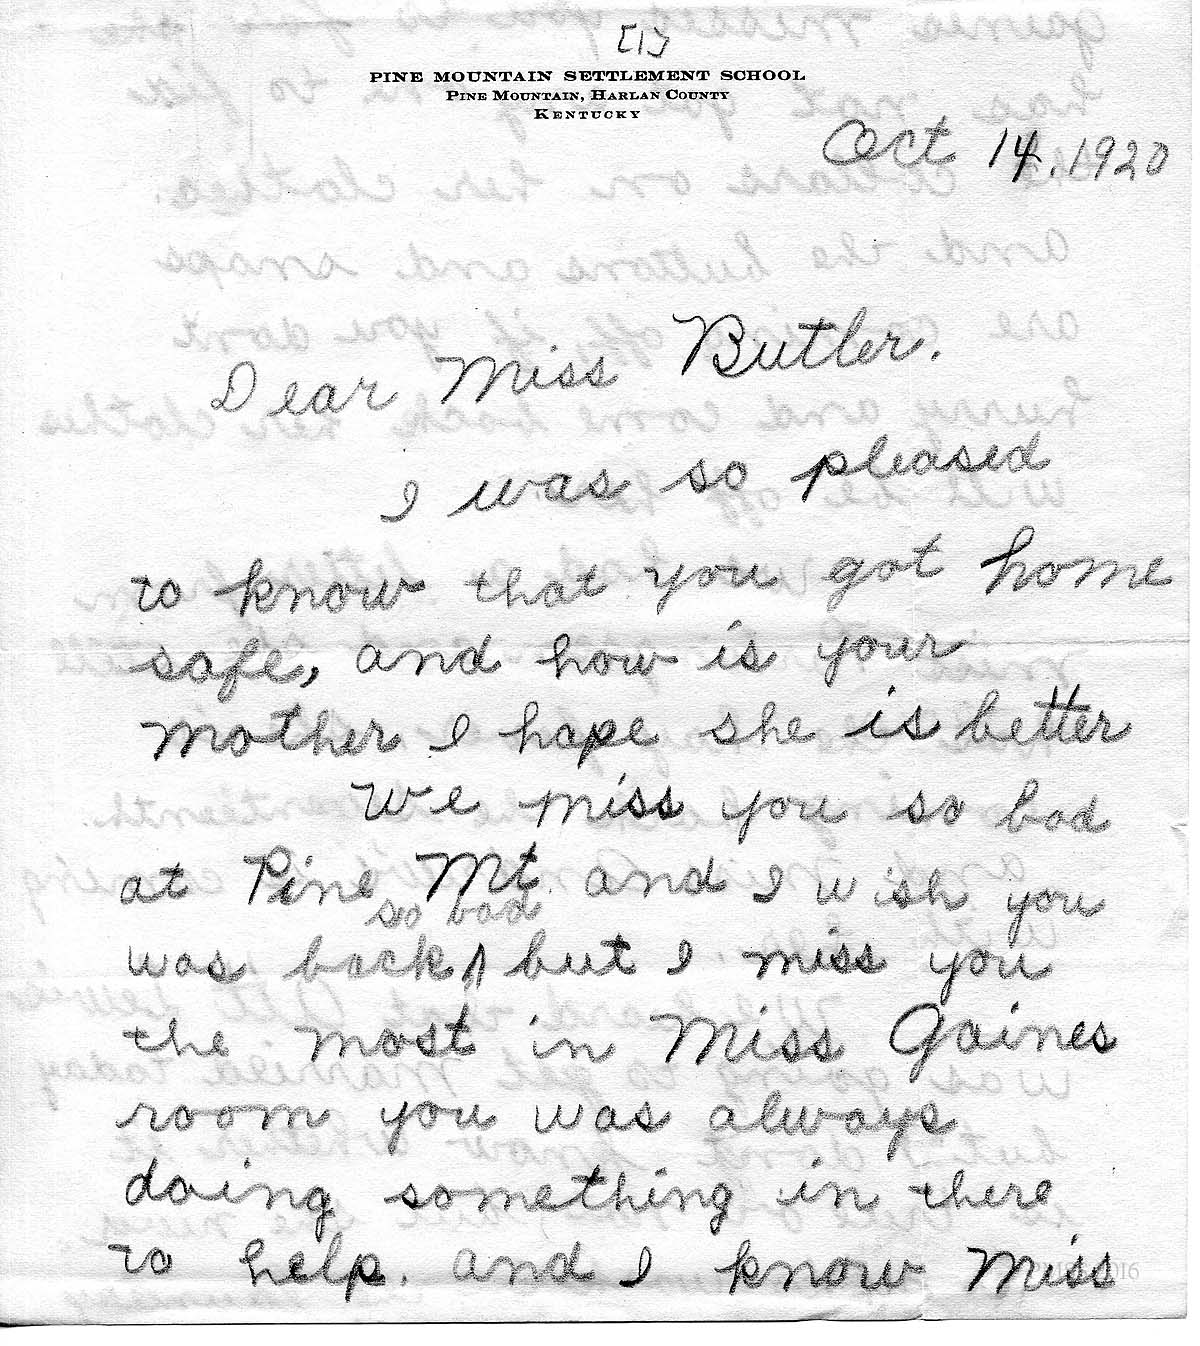 [1]
PINE MOUNTAIN SETTLEMENT SCHOOL
PINE MOUNTAIN, HARLAN COUNTY
KENTUCKY
Oct 14, 1920
Dear Miss Butler.
I was so pleased
to know that you got home
safe, and how is your
Mother I hope she is better
We miss you so bad
at Pine Mt. and I wish you
so bad
was back but I miss you
the most in Miss Gaines
room you was always
doing something in there
to help. and I know Miss